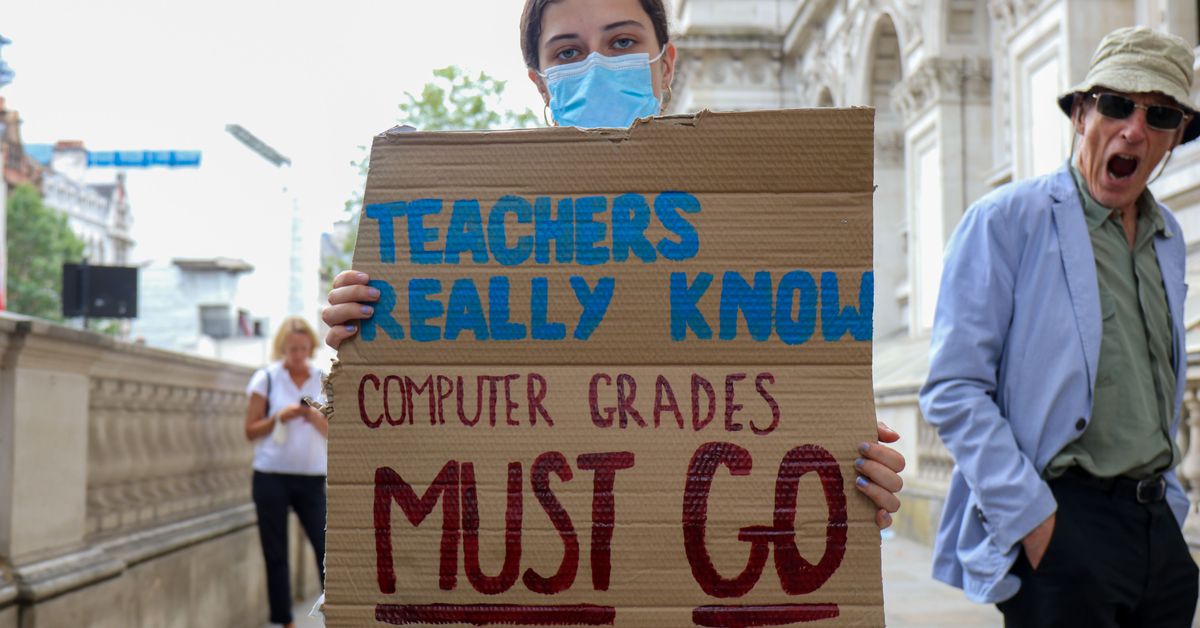 TEACHERS
REALLY KNOW
COMPUTER GRADES
MUST GO